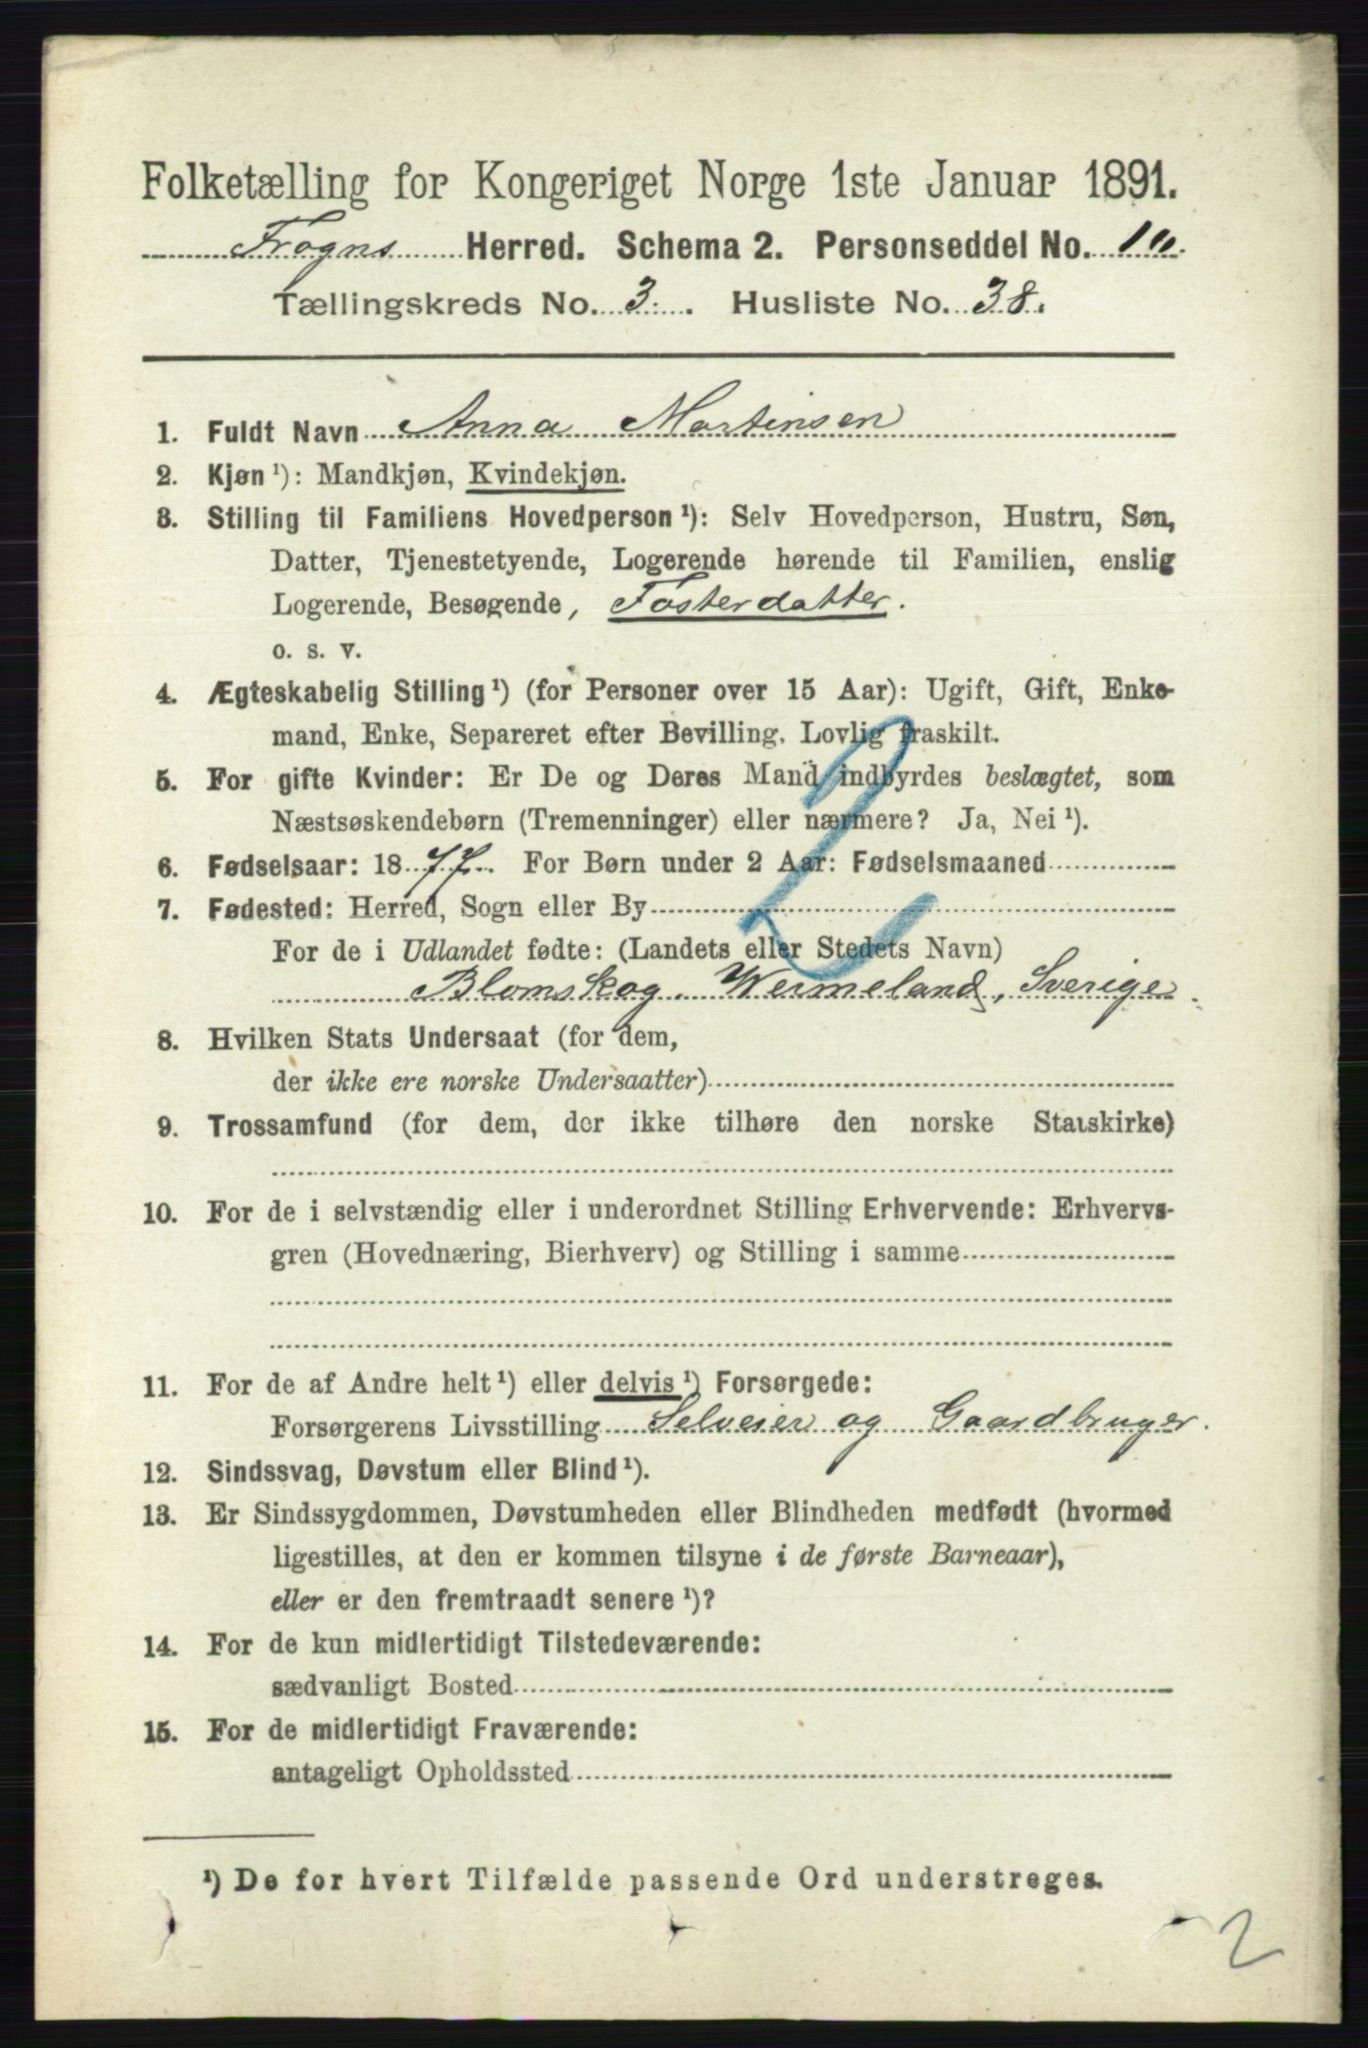 Folketælling for Kongeriget Norge 1ste Januar 1891.
Frogns Herred. Schema 2. Personseddel No. 10.
Tællingskreds No. 3. Husliste No. 38.
1. Fuldt Navn Anna Martinsen
2. Kjøn¹): Mandkjøn, Kvindekjøn.
3. Stilling til Familiens Hovedperson¹): Selv Hovedperson, Hustru, Søn,
Datter, Tjenestetyende, Logerende hørende til Familien, enslig
Logerende, Besøgende, Fosterdatter.
o. s. v.
4. Ægteskabelig Stilling¹) (for Personer over 15 Aar): Ugift, Gift, Enke-
mand, Enke, Separeret efter Bevilling. Lovlig fraskilt.
5. For gifte Kvinder: Er De og Deres Mand indbyrdes beslægtet, som
Næstsøskendebørn (Tremenninger) eller nærmere? Ja, Nei¹).
6. Fødselsaar: 1877. For Børn under 2 Aar: Fødselsmaaned
7. Fødested: Herred, Sogn eller By
For de i Udlandet fødte: (Landets eller Stedets Navn)
Blomskog. Wermeland, Sverige.
2
8. Hvilken Stats Undersaat (for dem,
der ikke ere norske Undersaatter)
9. Trossamfund (for dem, der ikke tilhøre den norske Statskirke)
10. For de i selvstændig eller i underordnet Stilling Erhvervende: Erhvervs-
gren (Hovednæring, Bierhverv) og Stilling i samme
11. For de af Andre helt¹) eller delvis¹) Forsørgede:
Forsørgerens Livsstilling Selveier og Gaardbruger.
12. Sindssvag, Døvstum eller Blind¹).
13. Er Sindssygdommen, Døvstumheden eller Blindheden medfødt (hvormed
ligestilles, at den er kommen tilsyne i de første Barneaar),
eller er den fremtraadt senere¹)?
14. For de kun midlertidigt Tilstedeværende:
sædvanligt Bosted
15. For de midlertidigt Fraværende:
antageligt Opholdssted
¹) De for hvert Tilfælde passende Ord understreges.
2